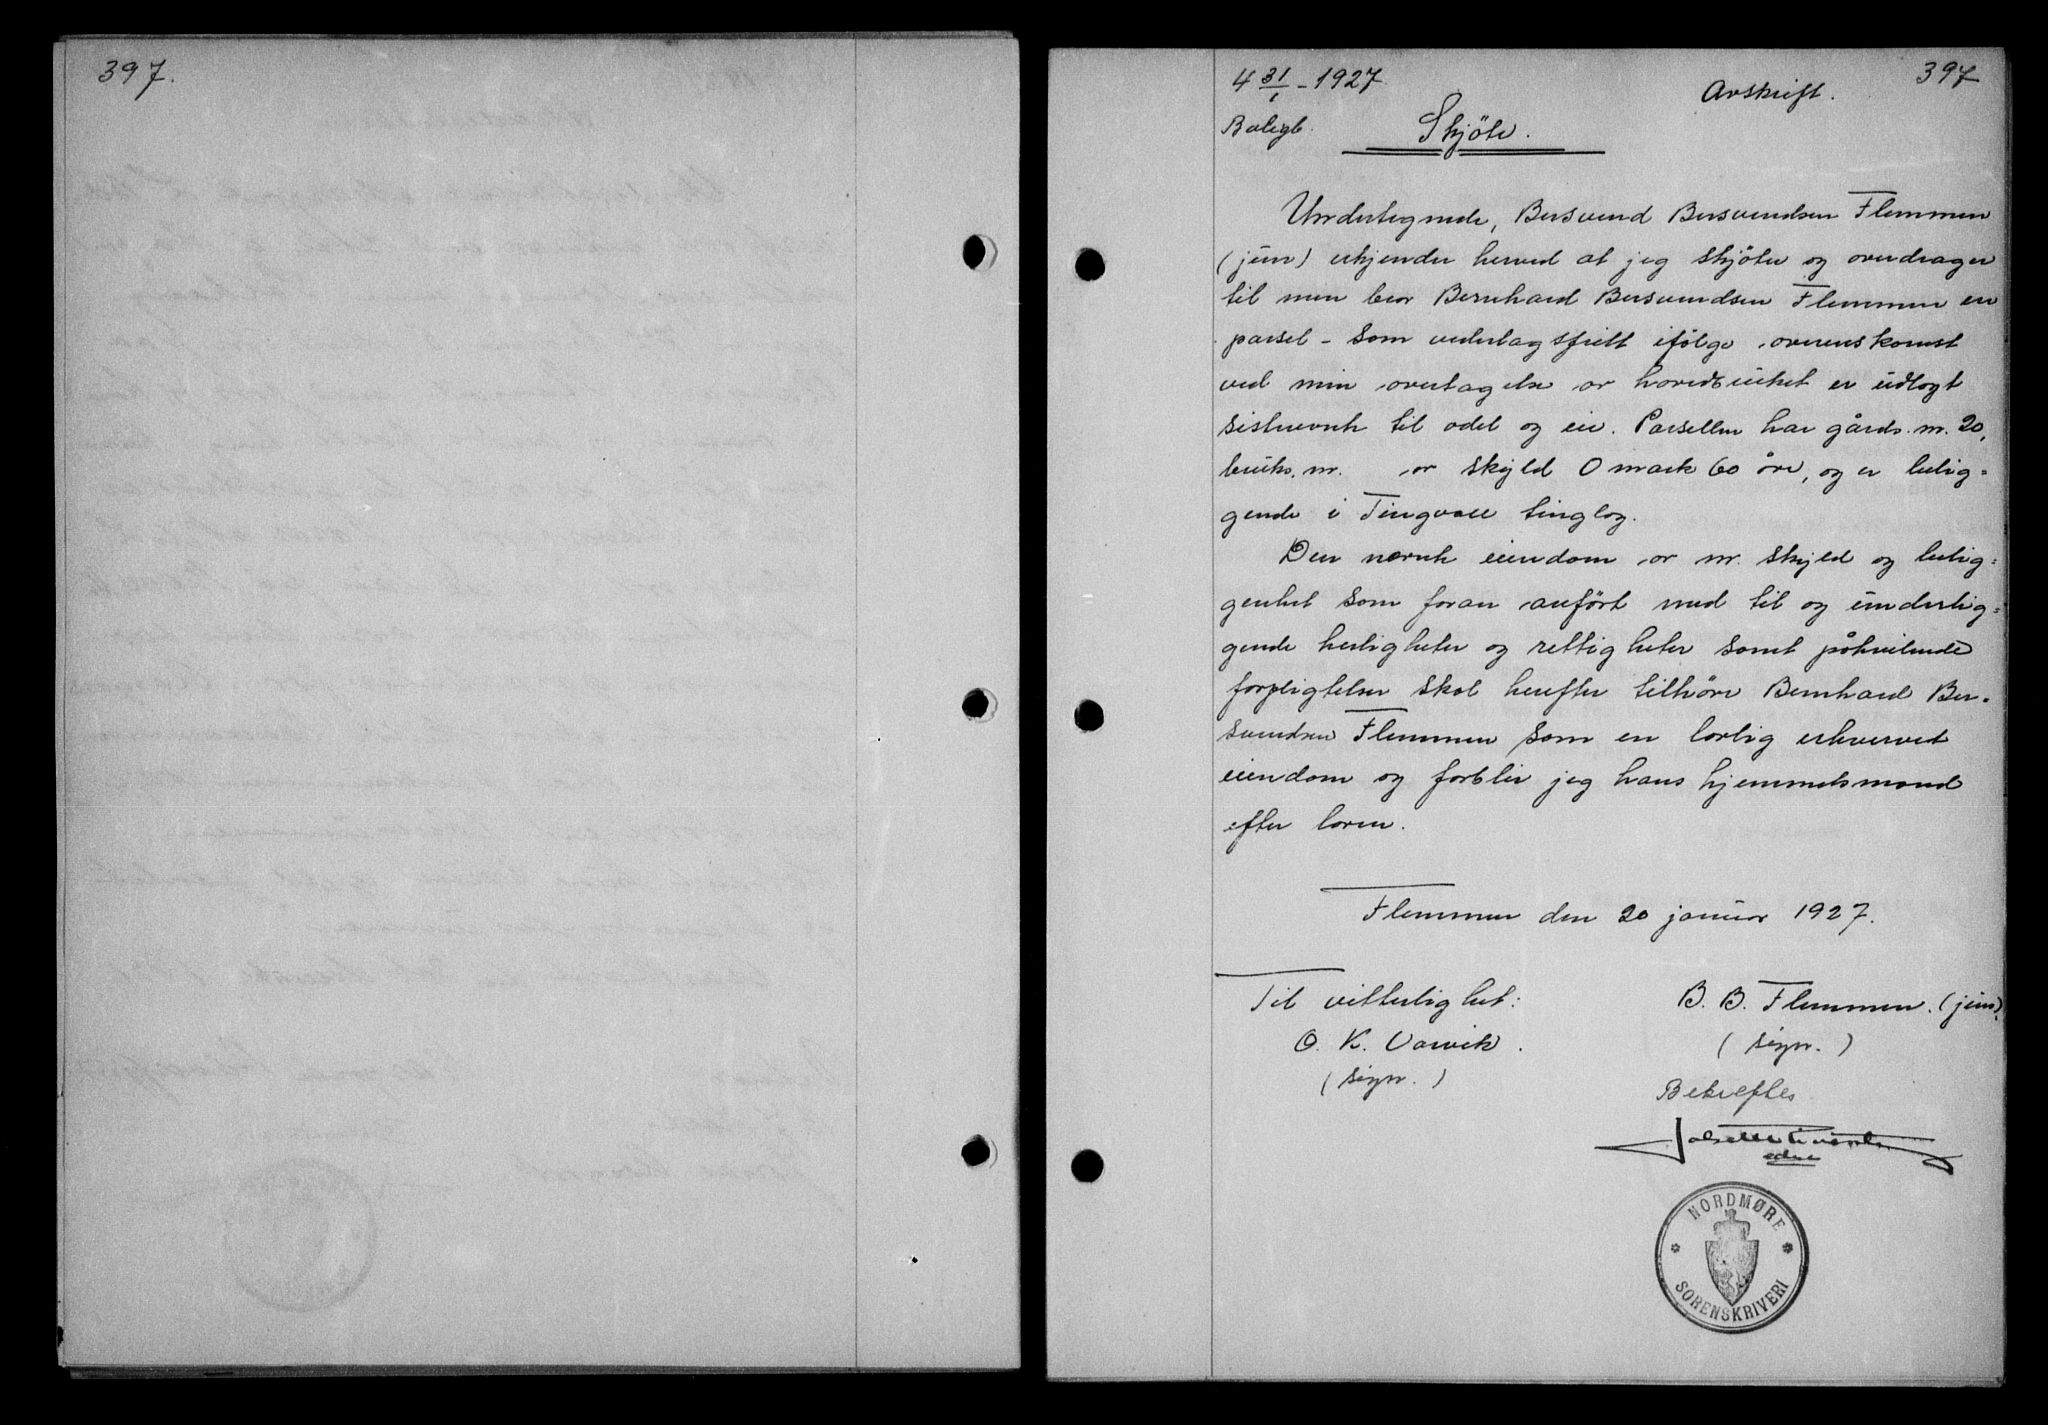 397.
4 31/1 - 1927
Avskrift.
397
Boligb.
Skjöte.
Undertegnede, Bersvend Bersvendsen Flemmen
(jun) erkjender herved at jeg skjöter og overdrager
til min bror Bernhard Bersvendsen Flemmen en
parsel - som vederlagsfritt ifölge overenskomst
ved min overtagelse av hovedbruket er udlagt
sistnevnte til odel og eie. Parsellen har gårds. nr. 20,
bruks. nr. av skyld 0 mark 60 öre, og er belig=
gende i Tingvoll tinglag.
Den nevnte eiendom av nr. skyld og belig=
genhet som foran anfört med til og underlig=
gende herligheter og rettigheter samt påhvilende
forpligtelser skal herefter tilhöre Bernhard Ber-
svendsen Flemmen som en lovlig erhvervet
eiendom og forblir jeg hans hjemmelsmand
efter loven.
Flemmen den 20 januar 1927.
Til vitterlighet:
B. B. Flemmen. (jun).
O. K. Vaavik.
(sign.)
(sign.)
Bekreftes
edsv
NORDMØRE
SORENSKRIVERI